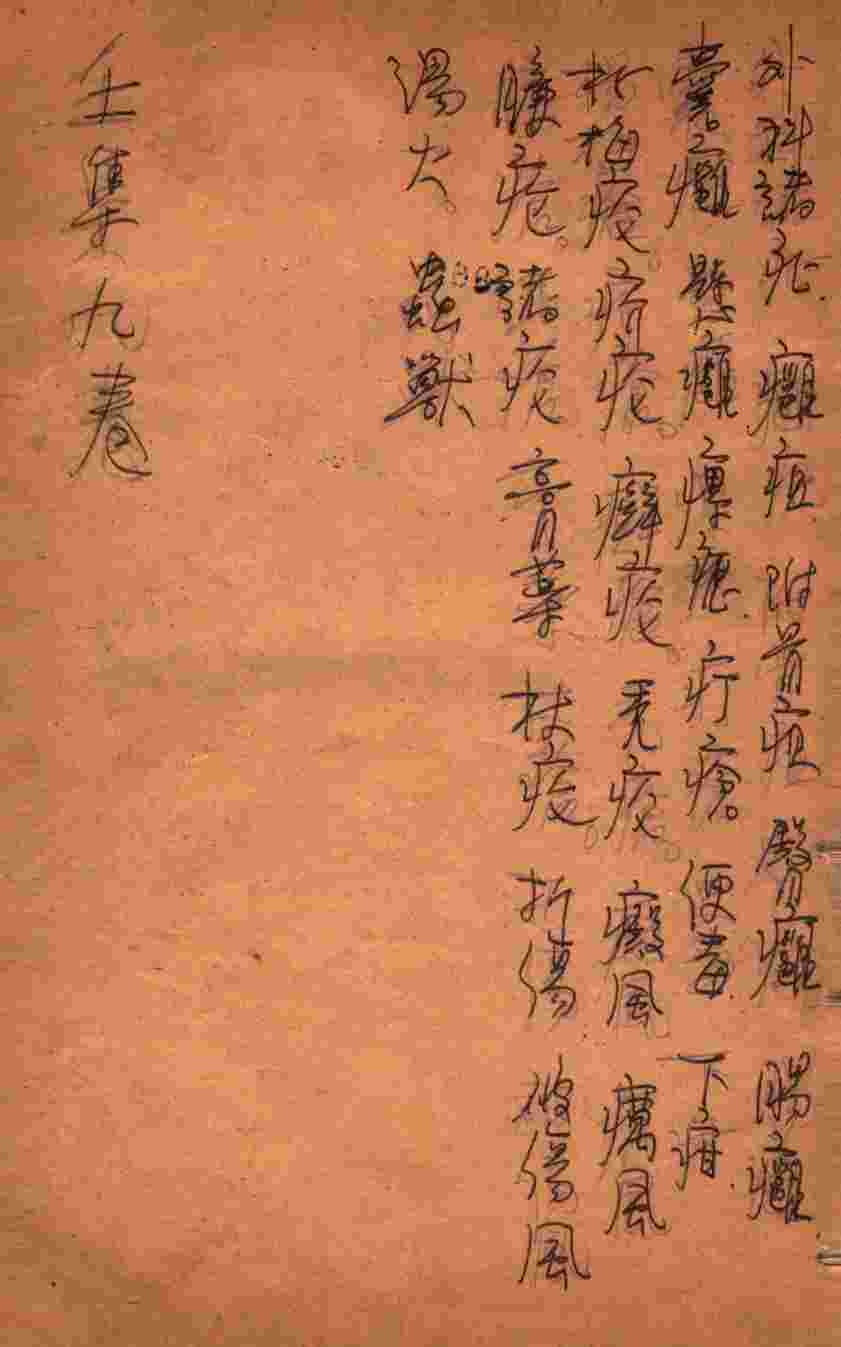 外科諸症 癰疽 附骨疽 臀癰 腸癰
囊癰 懸癰 瘰癧 疔瘡 便毒 下疳
楊梅瘡 疥瘡 癬瘡 禿瘡 癜風 癘風
臁瘡 諸瘡 膏藥 杖瘡 折傷 破傷風
湯火 蟲獸
壬集九卷